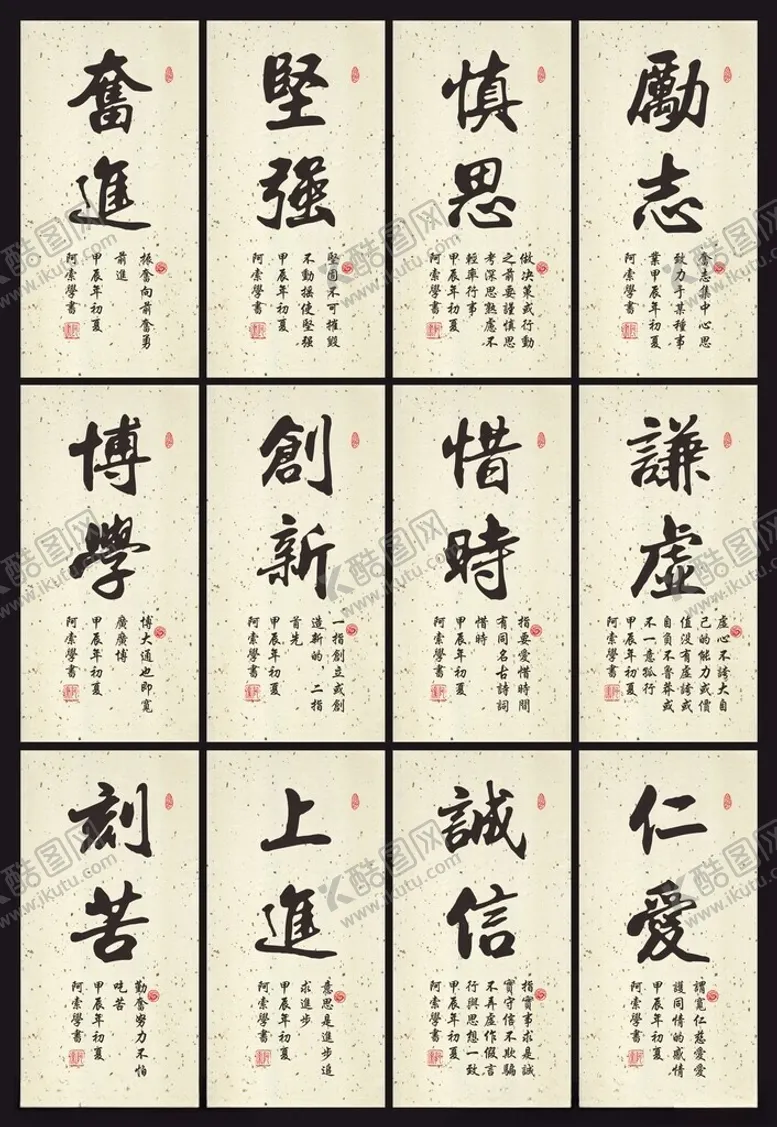 奮進
振奮向前奮勇
前進
甲辰年初夏
阿索學書
堅强
堅固不可摧毀
不動摇使堅强
甲辰年初夏
阿索學書
慎思
做决策或行動
之前要謹慎思
考深思熟慮不
輕率行事
甲辰年初夏
阿索學書
勵志
奮志集中心思
致力于某種事
業甲辰年初夏
阿索學書
博學
博大通也即寬
廣廣博
甲辰年初夏
阿索學書
創新
一指創立或創
造新的，二指
首先
甲辰年初夏
阿索學書
惜時
指要愛惜時間
有同名古詩詞
惜時
甲辰年初夏
阿索學書
謙虛
虛心不誇大自
己的能力或價
值没有虛誇或
自負不魯莽或
不一意孤行
甲辰年初夏
阿索學書
刻苦
勤奮努力不怕
吃苦
甲辰年初夏
阿索學書
上進
意思是進步追
求進步
甲辰年初夏
阿索學書
誠信
指實事求是誠
實守信不欺騙
不弄虛作假言
行與思想一致
甲辰年初夏
阿索學書
仁愛
謂寬仁慈愛愛
護同情的感情
甲辰年初夏
阿索學書
酷图网
www.ikutu.com